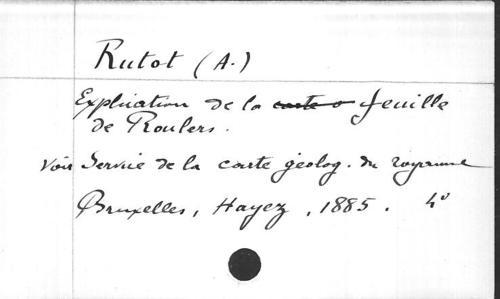 Rutot (A.)
Explication de la carte o feuille
de Roulers.
Voir Service de la carte géolog. du royaume
Bruxelles, Hayez, 1885. 4º